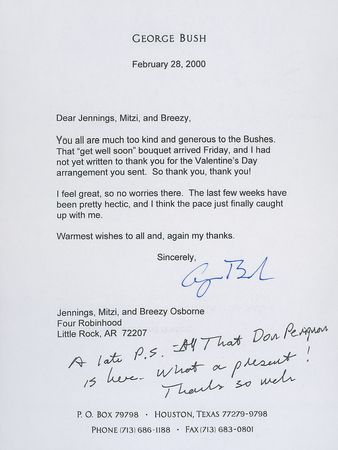 GEORGE BUSH
February 28, 2000
Dear Jennings, Mitzi, and Breezy,
You all are much too kind and generous to the Bushes.
That "get well soon" bouquet arrived Friday, and I had
not yet written to thank you for the Valentine's Day
arrangement you sent. So thank you, thank you!
I feel great, so no worries there. The last few weeks have
been pretty hectic, and I think the pace just finally caught
up with me.
Warmest wishes to all and, again my thanks.
Sincerely,
G Bush
Jennings, Mitzi, and Breezy Osborne
Four Robinhood
Little Rock, AR 72207
A late P.S. - All That Dom Perignon
is here. What a present!
Thanks so much
P. O. BOX 79798 · HOUSTON, TEXAS 77279-9798
PHONE (713) 686-1188 · FAX (713) 683-0801